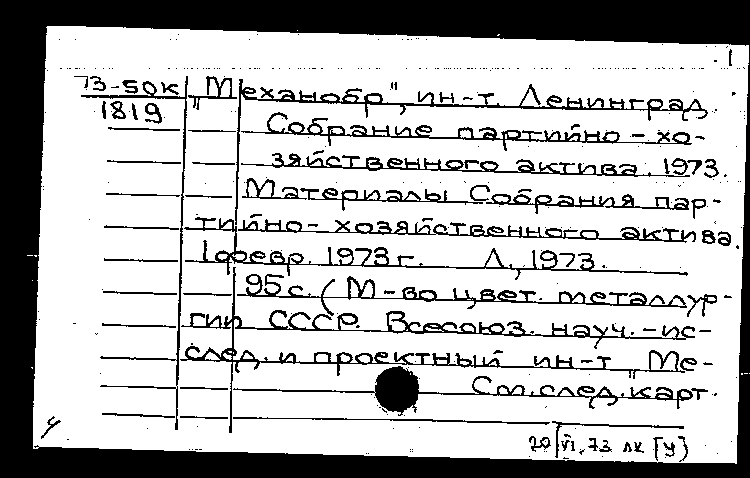 73-50к „Механобр", ин-т. Ленинград.
1819
Собрание партийно-хо-
зяйственного актива. 1973.
Материалы Собрания пар-
тийно-хозяйственного актива.
1 февр. 1973 г. Л., 1973.
95 с. (М-во цвет. металлур-
гии СССР. Всесоюз. науч.-ис-
след. и проектный ин-т „Ме-
См. след. карт.
20/VI.73 лк [у]